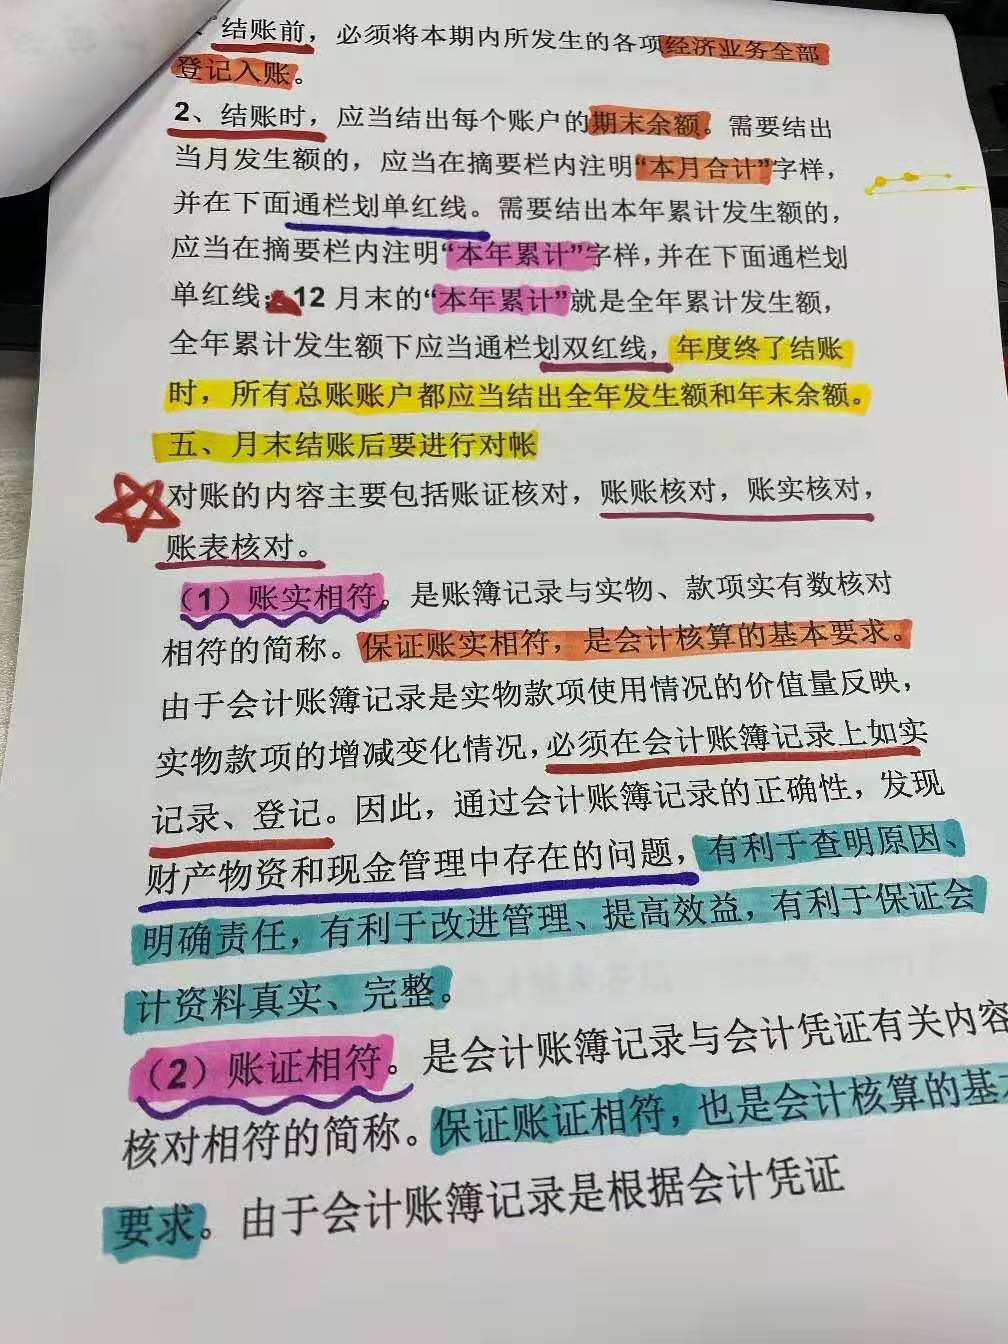 、结账前，必须将本期内所发生的各项经济业务全部
登记入账。
2、结账时，应当结出每个账户的期末余额。需要结出
当月发生额的，应当在摘要栏内注明“本月合计”字样，
并在下面通栏划单红线。需要结出本年累计发生额的，
应当在摘要栏内注明“本年累计”字样，并在下面通栏划
单红线；12 月末的“本年累计”就是全年累计发生额，
全年累计发生额下应当通栏划双红线，年度终了结账
时，所有总账账户都应当结出全年发生额和年末余额。
五、月末结账后要进行对帐
对账的内容主要包括账证核对，账账核对，账实核对，
账表核对。
（1）账实相符。是账簿记录与实物、款项实有数核对
相符的简称。保证账实相符，是会计核算的基本要求。
由于会计账簿记录是实物款项使用情况的价值量反映，
实物款项的增减变化情况，必须在会计账簿记录上如实
记录、登记。因此，通过会计账簿记录的正确性，发现
财产物资和现金管理中存在的问题，有利于查明原因、
明确责任，有利于改进管理、提高效益，有利于保证会
计资料真实、完整。
（2）账证相符。是会计账簿记录与会计凭证有关内容
核对相符的简称。保证账证相符，也是会计核算的基本
要求。由于会计账簿记录是根据会计凭证